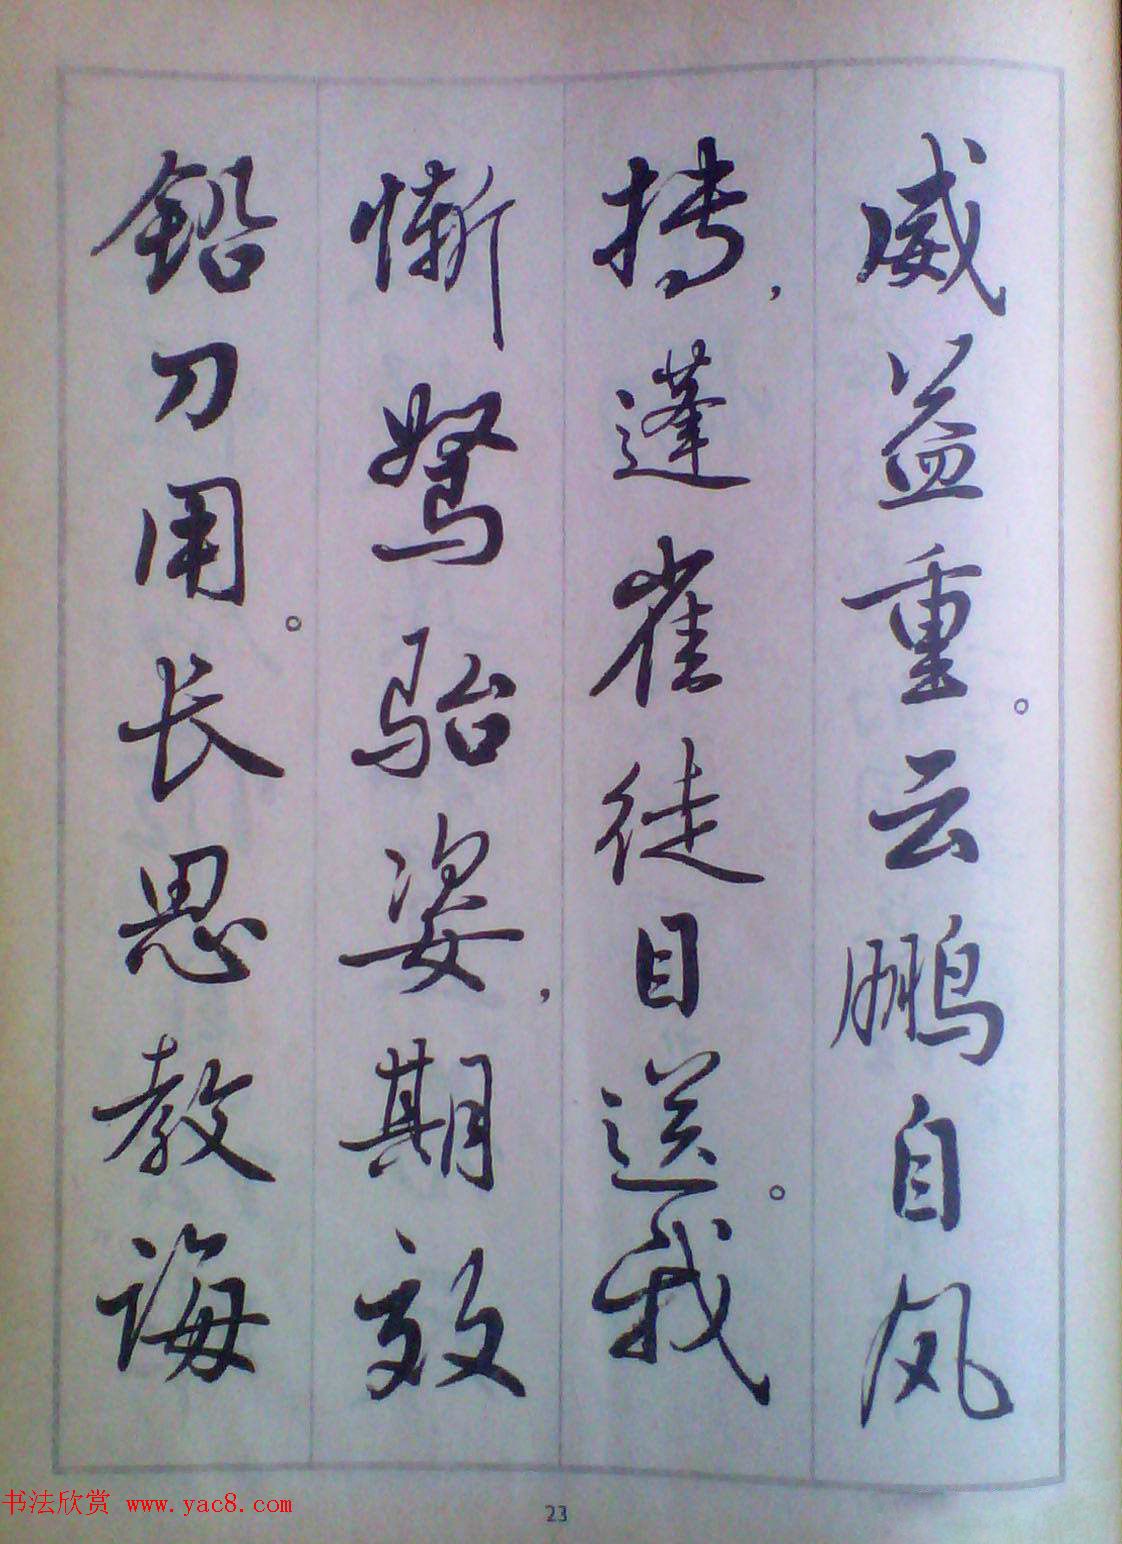 威益重。云鹏自风
摶，蓬雀徒目送。我
慚驽骀姿，期效
鉛刀用。长思教誨
23
书法欣赏 www.yac8.com